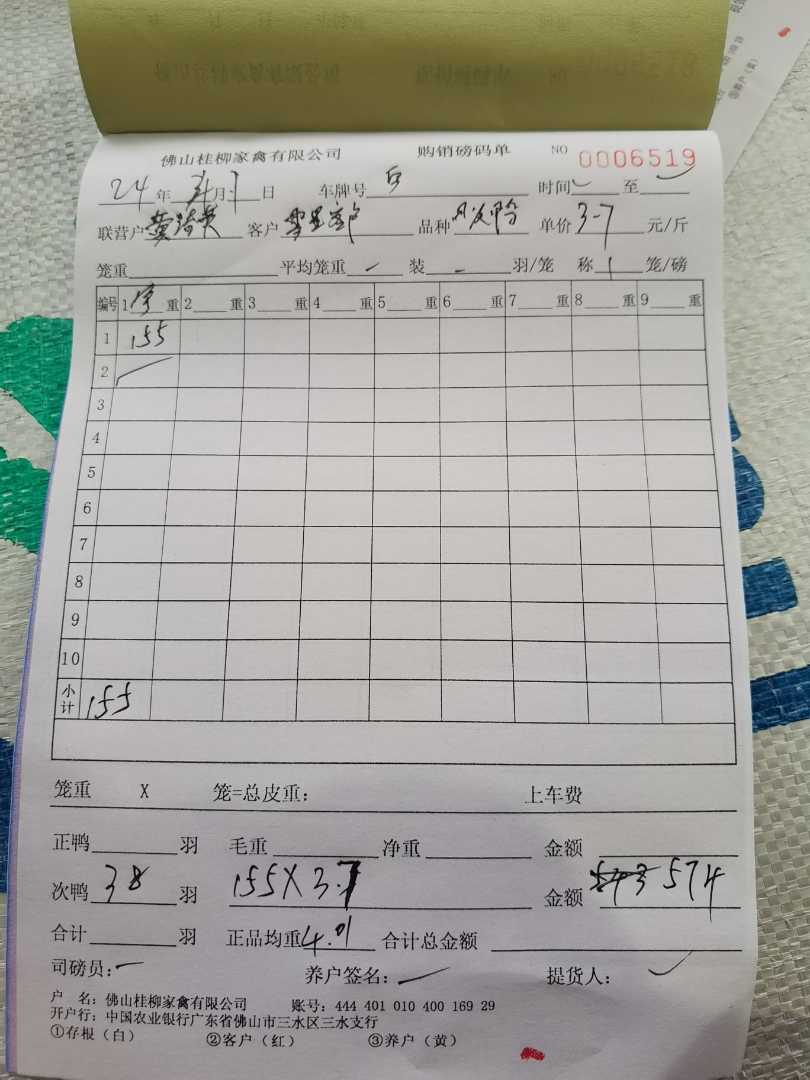 佛山桂柳家禽有限公司 购销磅码单 NO 0006519
24 年 月 1 日 车牌号 时间 至
联营户 黄 客户 品种 单价 3-7 元/斤
笼重 平均笼重 装 - 羽/笼 称 1 笼/磅
编号 1 重 2 重 3 重 4 重 5 重 6 重 7 重 8 重 9 重
1 155
2
3
4
5
6
7
8
9
10
小计 155
笼重 X 笼=总皮重： 上车费
正鸭 羽 毛重 净重 金额
次鸭 38 羽 155X3.7 金额 543 574
合计 羽 正品均重 4.01 合计总金额
司磅员： 养户签名： 提货人：
户 名：佛山桂柳家禽有限公司 账号：444 401 010 400 169 29
开户行：中国农业银行广东省佛山市三水区三水支行
①存根（白） ②客户（红） ③养户（黄）